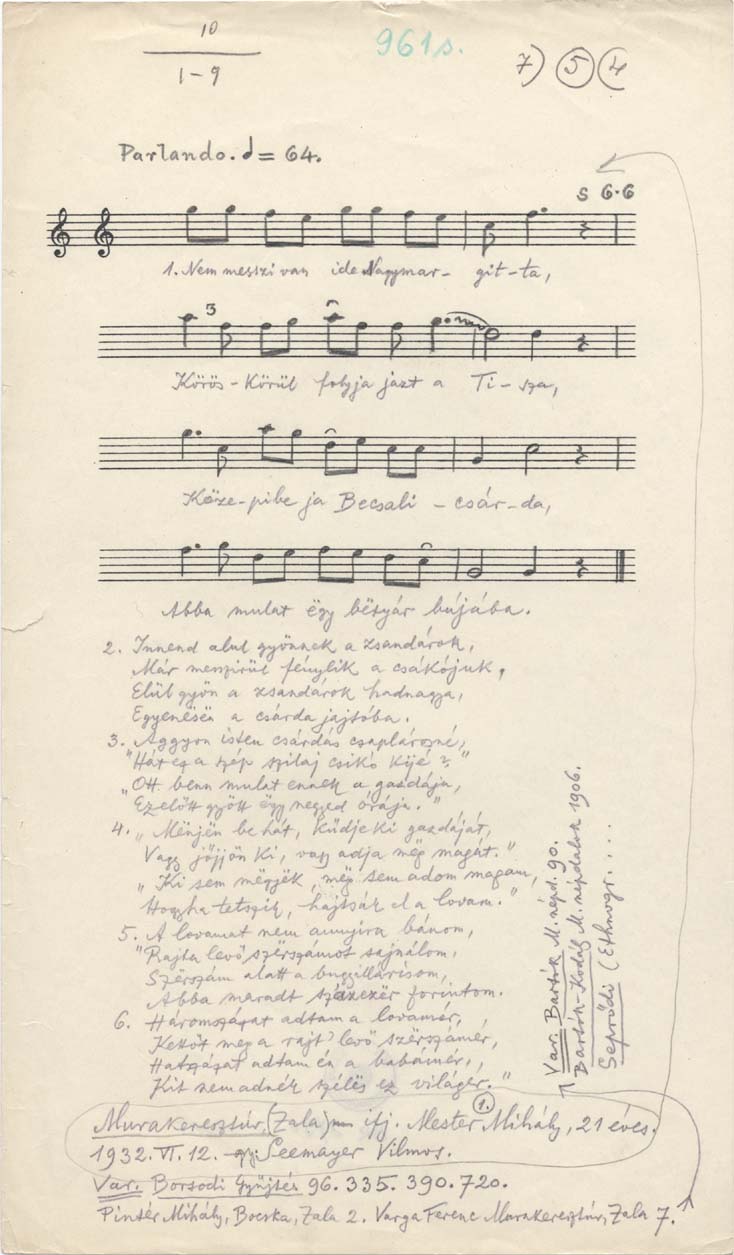 10
1-9
961s.
7) 5 (4
Parlando. = 64.
S 6·6
1. Nem messzi van ide Nagymar- git-ta,
Körös-Körül folyja jazt a Ti-sza,
Köze-pibe ja Becsali - csár-da,
3
Abba mulat ëgy bëtyár bújába.
2. Innend alul gyönnek a zsandárok,
Már messzirül fénylik a csákójuk,
Elül gyön a zsandárok hadnagya,
Egyenësën a csárda jajtóba.
3. Aggyon isten csárdás csaplárosné,
"Hát ez a szép szilaj csikó kijé?"
"Ott benn mulat ennek a gazdája,
"Ezelőtt gyött ëgy negyed órája."
4. "Mënjën be hát, küdje ki gazdáját,
Vagy jöjjön ki, vagy adja mëg magát."
"Ki sem mëgyëk, mëg sem adom magam,
Hogyha tetszik, hajtsák el a lovam."
5. A lovamat nem annyira bánom,
"Rajta levő szërszámot sajnálom,
Szërszám alatt a bugyillárisom,
Abba maradt százezër forintom.
6. Háromszázat adtam a lovamér,
Kettőt meg a rajt' levő szërszámér,
Hatszázat adtam én a babámér,
Kit nem adnék szélës ez világér."
Murakeresztúr, (Zala) ifj. Mester Mihály, 21 éves.
1.
1932. VI. 12. Seemayer Vilmos.
Var. Borsodi Gyűjtés 96. 335. 390. 720.
Pintér Mihály, Bocska, Zala 2. Varga Ferenc Murakeresztúr, Zala 7.
Var. Bartók M. népd. 90.
Bartók-Kodály M. népdalok 1906.
Seprődi (Ethnogr. . . .